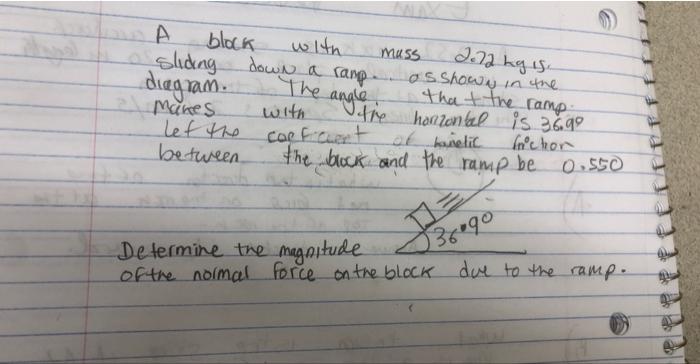 A block with mass 2.72 kg is
sliding down a ramp.. as shown in the
diagram. The angle that the ramp
makes with the horizontal is 36.9°
Let the coefficient of kinetic friction
between the block and the ramp be 0.550
36.90
Determine the magnitude
of the normal force on the block due to the ramp.